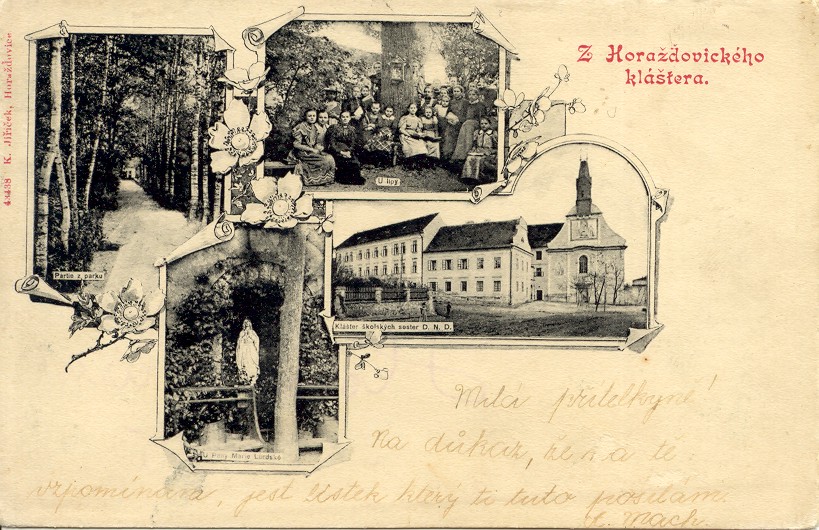 Z Horažďovického
kláštera.
43438 K. Jiříček, Horažďovice.
U lípy
Partie z parku
Klášter školských sester D. N. D.
U Panny Marie Lurdské
Milá přítelkyně!
Na důkaz, že na tě
vzpomínám, jest lístek který ti tuto posílám.
Mach